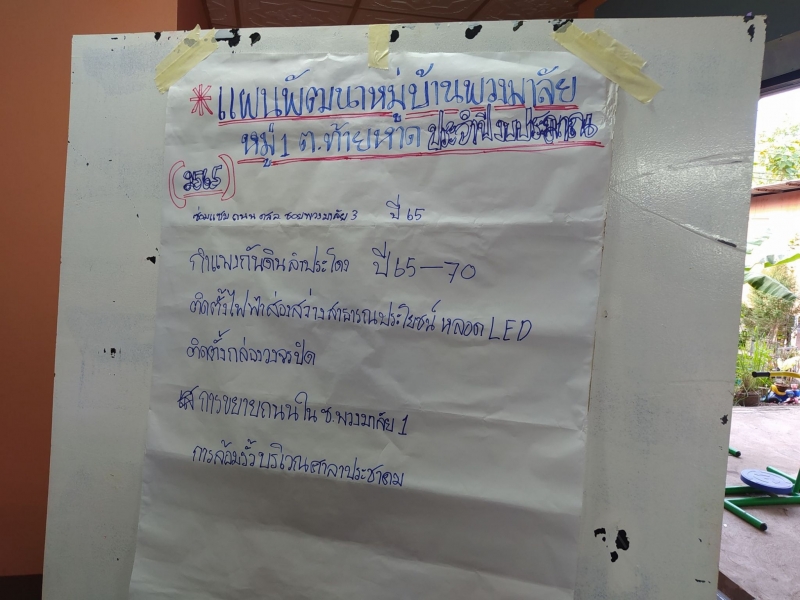 แผนพัฒนาหมู่บ้านพวงมาลัย
หมู่ 1 ต.ท้ายหาด ประจำปีงบประมาณ
(2565)
ซ่อมแซม ถนน คสล ซอยพวงมาลัย 3 ปี 65
กำแพงกันดินลำประโดง ปี 65-70
ติดตั้งไฟฟ้าส่องสว่างสาธารณประโยชน์ หลอด LED
ติดตั้งกล่องวงจรปิด
การขยายถนนใน ซ.พวงมาลัย 1
การล้อมรั้วบริเวณศาลาประชาคม